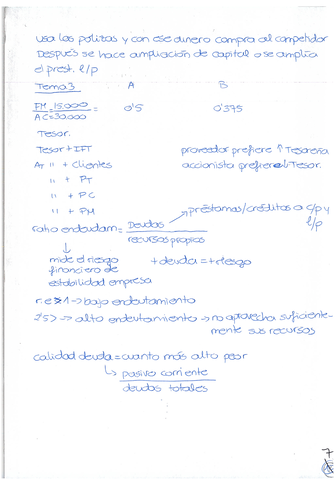 usa las polizas y con ese dinero compra al competidor
Después se hace ampliación de capital o se amplia
el prest. l/p
Tema 3 A B
FM = 15.000 = 0'5 0'375
AC = 30.000
Tesor.
Tesor + IFT proveedor prefiere ↑ Tesorería
AT " + Clientes accionista prefiere ↓ Tesor.
" + PT
" + PC
" + PM
préstamos/créditos a c/p y l/p
ratio endeudam = Deudas
recursos propios
mide el riesgo + deuda = + riesgo
financiero de
estabilidad empresa
r.e > 1 → bajo endeutamiento
→ alto endeutamiento → no aprovecha suficiente-
mente sus recursos
calidad deuda = cuanto más alto peor
↳ pasivo corriente
deudas totales
7